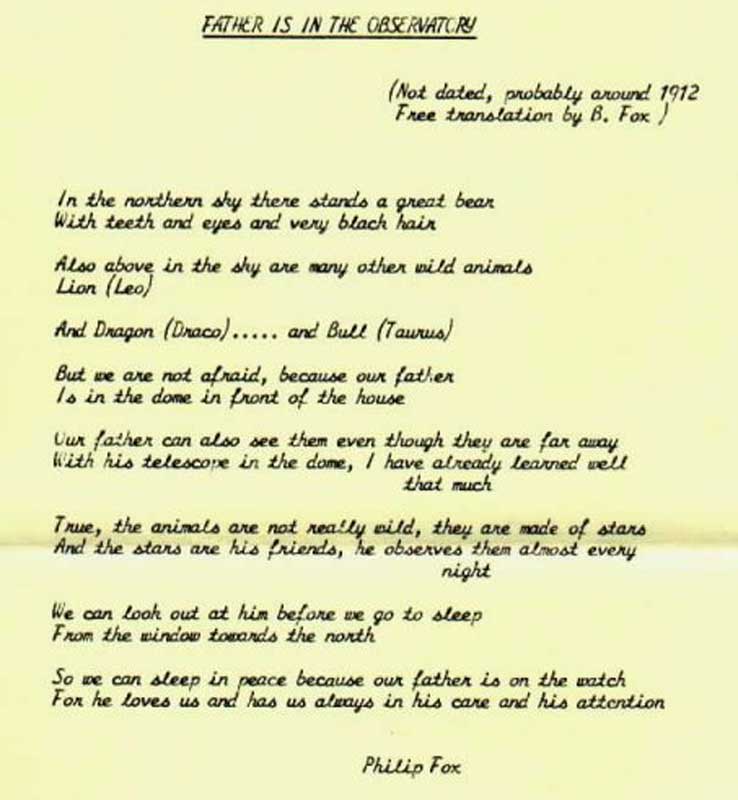 FATHER IS IN THE OBSERVATORY
(Not dated, probably around 1912
Free translation by B. Fox )
In the northern sky there stands a great bear
With teeth and eyes and very black hair
Also above in the sky are many other wild animals
Lion (Leo)
And Dragon (Draco)..... and Bull (Taurus)
But we are not afraid, because our father
Is in the dome in front of the house
Our father can also see them even though they are far away
With his telescope in the dome, I have already learned well
that much
True, the animals are not really wild, they are made of stars
And the stars are his friends, he observes them almost every
night
We can look out at him before we go to sleep
From the window towards the north
So we can sleep in peace because our father is on the watch
For he loves us and has us always in his care and his attention
Philip Fox